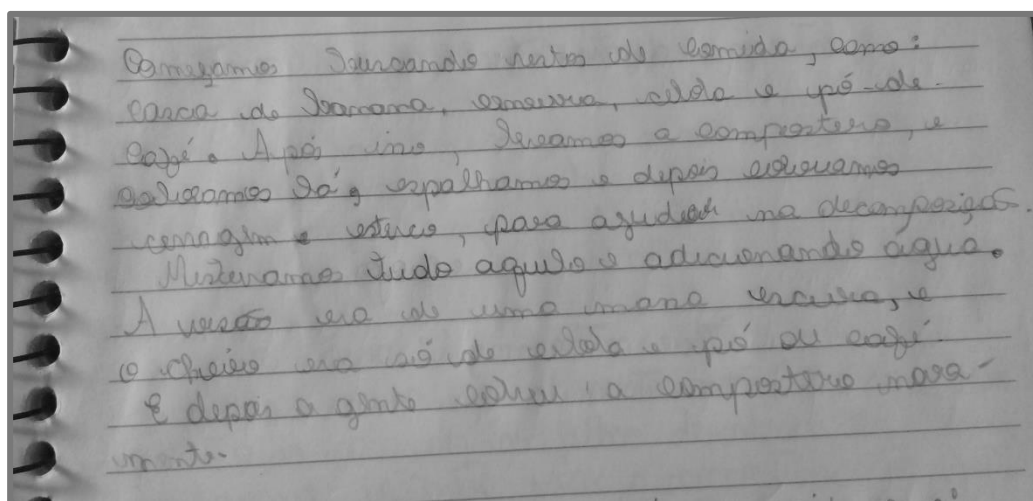 Começamos buscando restos de comida, como:
casca de banana, cenoura, cebola e pó-de.
café. Após isso, levamos a composteira, e
colocamos lá, espalhamos e depois colocamos
serragem e esterco, para ajudar na decomposição.
Misturamos tudo aquilo e adicionando água.
A era de uma mana escura, e
o cheiro era só de cebola e pó ou café.
E depois a gente cobriu a composteira nova-
mente.